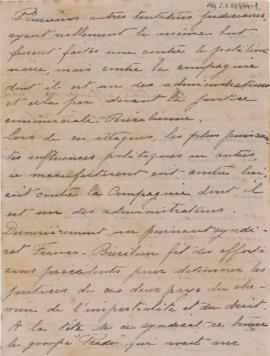 Plusieurs autres tentatives judiciaires,
ayant réellement le même but
furent faites non contre le pétition
naire, mais contre la compagnie
dont il est un des administrateurs
et cela par devant la justice
commerciale Brésilienne.
Lors de ces attaques, les plus puissan
tes influences politiques ou autres,
se manifestèrent soit contre lui,
soit contre la Compagnie dont il
est un des administrateurs.
Dernièrement un puissant syndi-
cat Franco-Brésilien fit des efforts
sans précédents pour détourner les
justices de ces deux pays du che-
min de l'impartialité et du droit.
A la tête de ce syndicat se trouve
le groupe qui avait avec